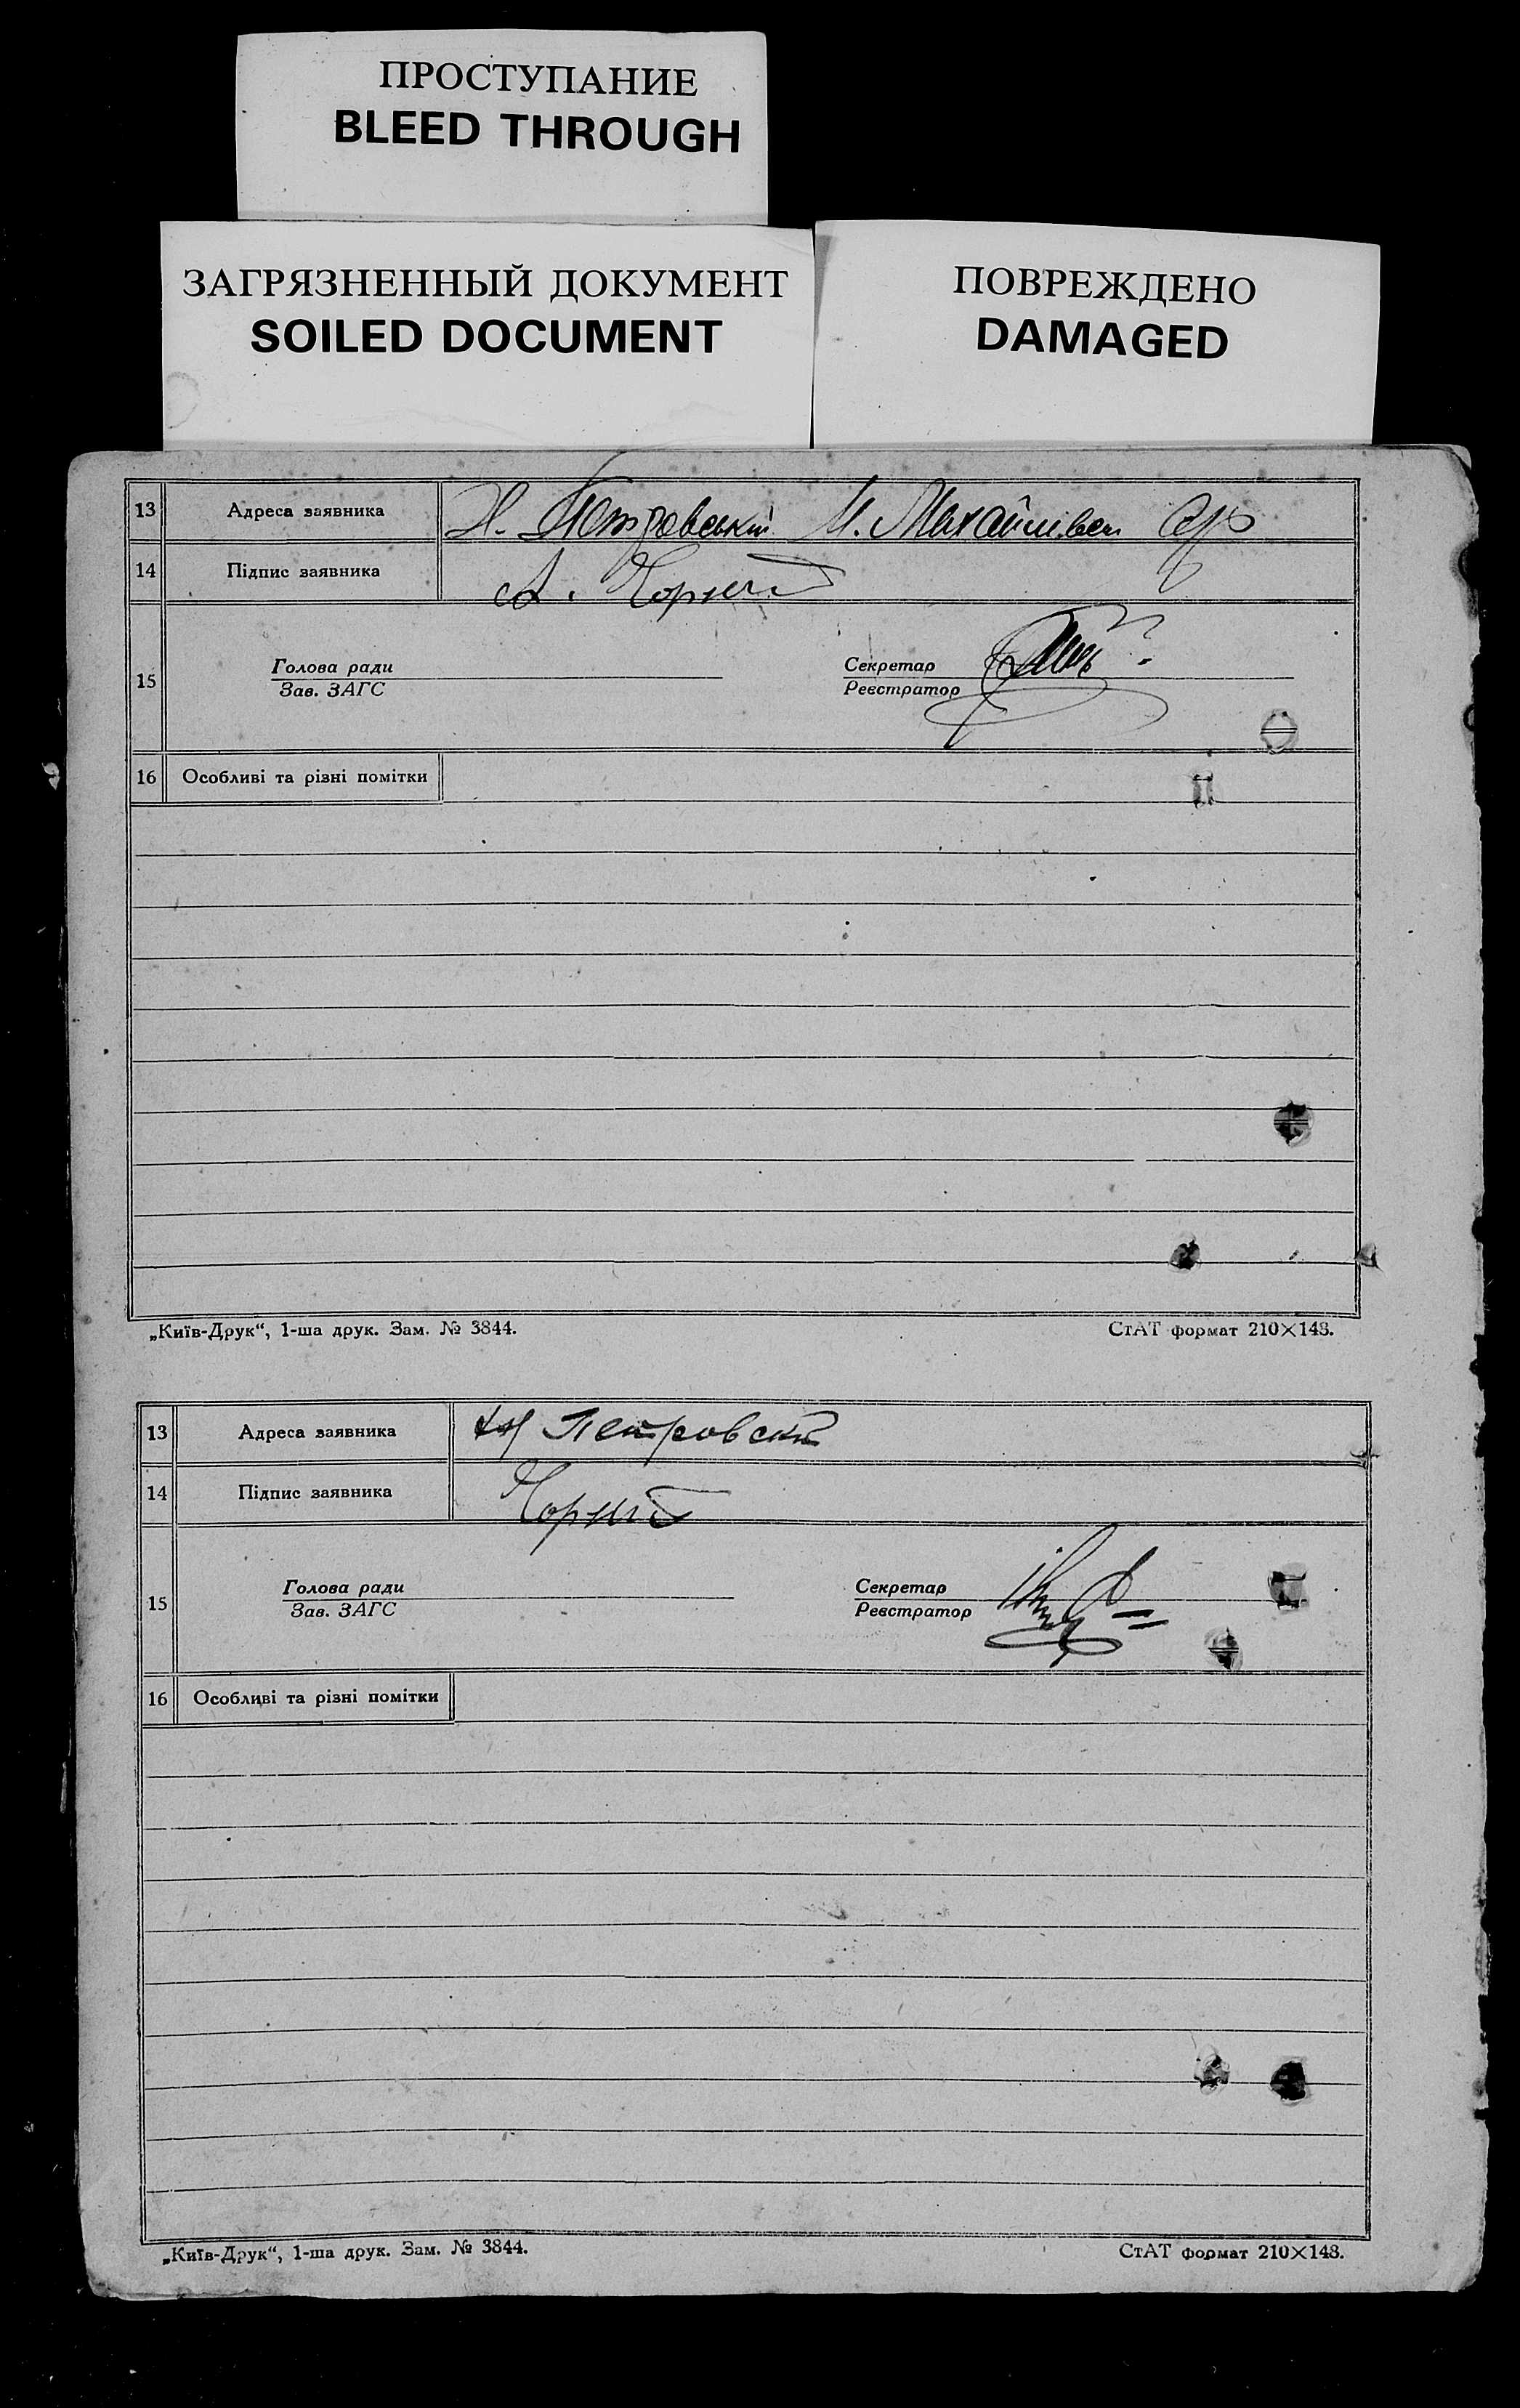 ПРОСТУПАНИЕ
BLEED THROUGH
ЗАГРЯЗНЕННЫЙ ДОКУМЕНТ
SOILED DOCUMENT
ПОВРЕЖДЕНО
DAMAGED
13 Адреса заявника Х. Петровський М.
14 Підпис заявника А. Чорний
15 Голова ради
Зав. ЗАГС
Секретар
Реєстратор
16 Особливі та різні помітки
„Київ-Друк“, 1-ша друк. Зам. № 3844.
СтАТ формат 210×148.
13 Адреса заявника Петровськ
14 Підпис заявника Чорний
15 Голова ради
Зав. ЗАГС
Секретар
Реєстратор
16 Особливі та різні помітки
„Київ-Друк“, 1-ша друк. Зам. № 3844.
СтАТ формат 210×148.